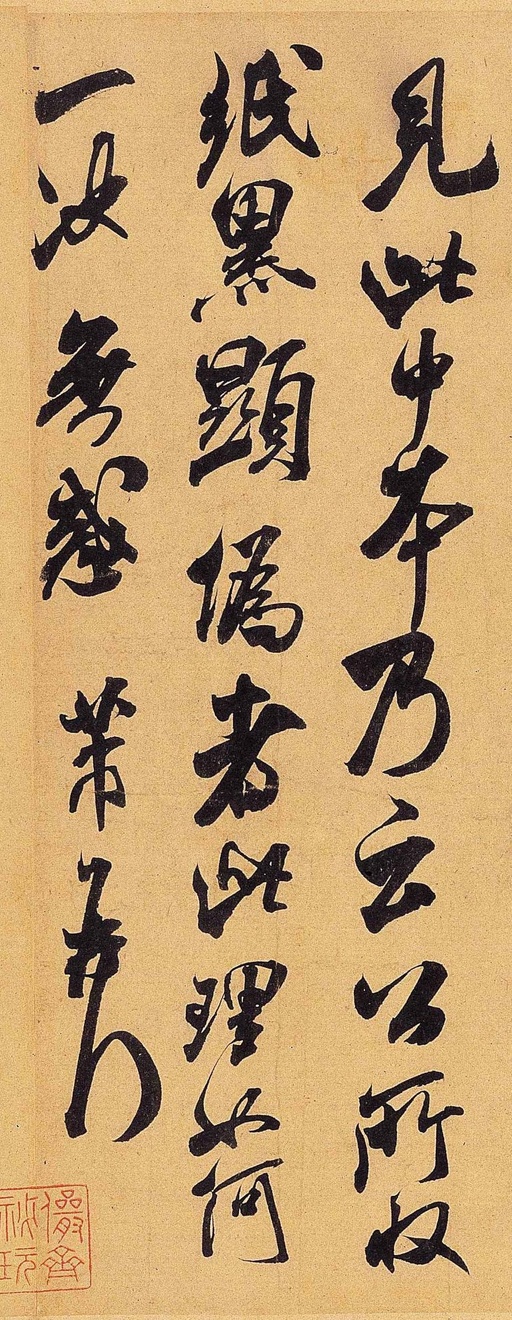 見此中本乃云公所收
紙黑顯偽者此理如何
一決無惑 芾再行
儼齋秘玩